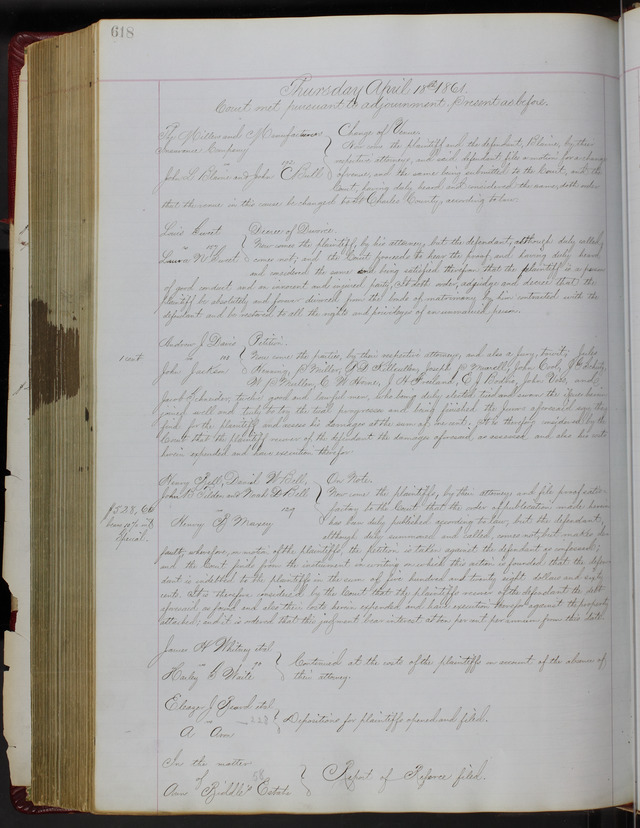 618
Thursday April 18th 1861.
Court met pursuant to adjournment. Present as before.
The Millers and Manufacturers
Insurance Company
vs
John L Blaine and John C Bull
Change of Venue.
Now comes the plaintiff and the defendant, Blaine, by their
respective attorneys, and said defendant files a motion for a change
of venue, and the same being submitted to the Court, and the
Court, having duly heard and considered the same, doth order
that the venue in this cause be changed to St Charles County, according to law.
Louis Ewert
vs
Laura N Ewert
Decree of Divorce.
Now comes the plaintiff, by his attorney, but the defendant, although duly called,
comes not; and the Court proceeds to hear the proof, and having duly heard
and considered the same and being satisfied therefrom that the plaintiff is a person
of good conduct and an innocent and injured party, It doth order, adjudge and decree that the
plaintiff be absolutely and forever divorced from the bonds of matrimony by him contracted with the
defendant and be restored to all the rights and privileges of an unmarried person.
1 cent
Andrew J. Davis
vs
John Jackson
Petition.
Now come the parties, by their respective attorneys, and also a jury, towit:
Henning, B Miller, Joseph B John Cook,
W B Mullen, C W Horne, J H Freeland, E J John Voss, and
Jacob good and lawful men, who being duly elected tried and sworn the issues herein
joined well and truly to try the trial progresses and being finished, the jurors aforesaid say they
find for the plaintiff and assess his damages at the sum of one cent; It is therefore considered by the
Court that the plaintiff recover of the defendant the damages aforesaid as assessed and also his costs
herein expended and have execution therefor.
$528,60
bears 10% int
Special.
Henry Bell, Daniel W Bell,
John B Tilden and Noah D Bell
129
Henry B Massey
On Note.
Now come the plaintiffs, by their attorneys and file proof satis-
factory to the Court that the order of publication made herein
has been duly published according to law, but the defendant,
although duly summoned and called, comes not, but makes de-
fault; wherefore, on motion of the plaintiffs, the petition is taken against the defendant as confessed;
and the Court finds from the instrument in writing on which this action is founded that the defen-
dant is indebted to the plaintiffs in the sum of five hundred and twenty eight dollars and sixty
cents. It is therefore considered by the Court that the plaintiffs recover of the defendant the debt
aforesaid, as found and also their costs herein expended and have execution therefor against the property
attached; and it is ordered that this judgment bear interest at ten per cent per annum from this date.
James H Whitney etal
vs
Harley G Waite
Continued at the costs of the plaintiffs on account of the absence of
their attorney.
Eleazer J Beard etal
128
A Ann
Depositions for plaintiffs opened and filed.
In the matter
of
58
Ann Biddle's Estate
Report of Referee filed.